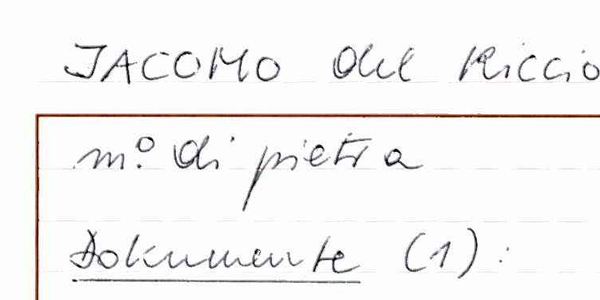 JACOMO del Riccio
mº di pietra
Dokumente (1):